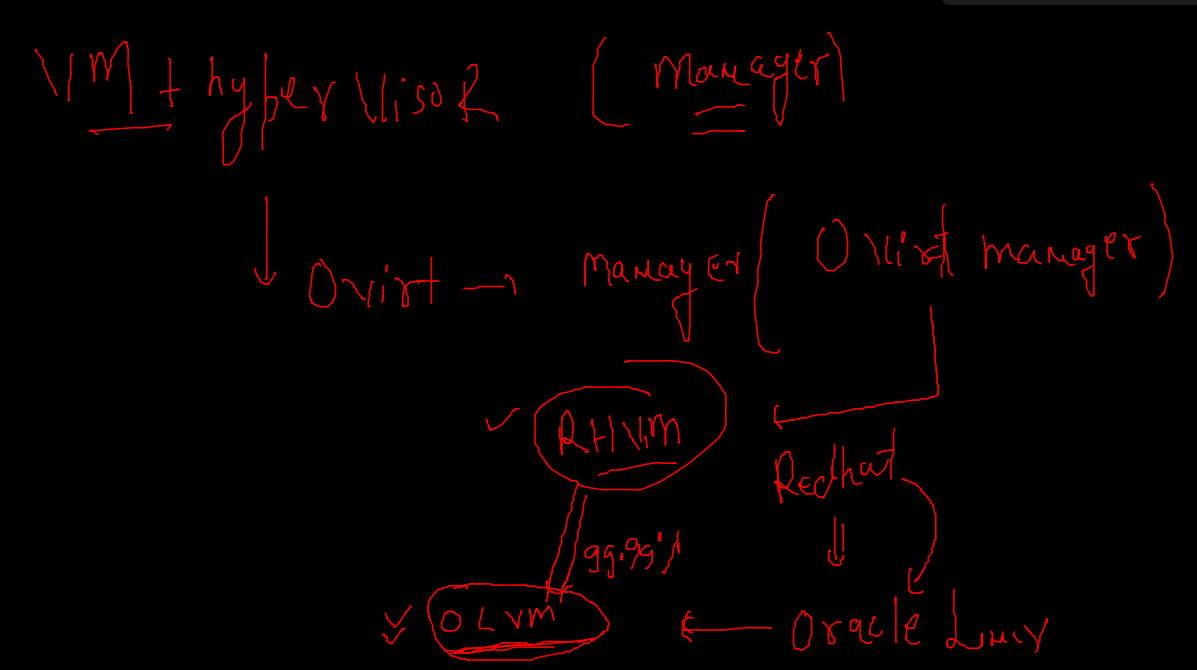 VM + hypervisor (Manager)
Ovirt → Manager (Ovirt manager)
RHVM
Redhat
99.99%
OLVM ← Oracle Linux